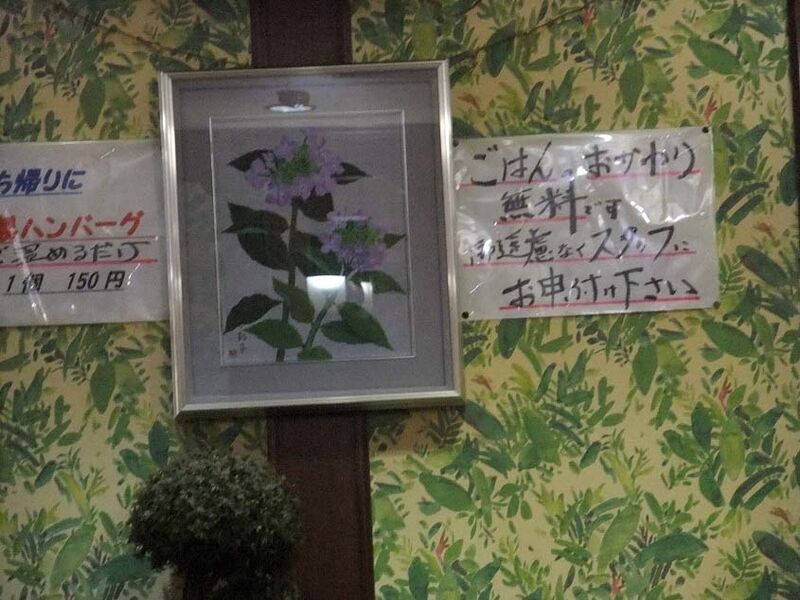 ち帰りに
ハンバーグ
温めるだけ
1個 150円
ごはんのおかわり
無料です
御遠慮なくスタッフに
お申付け下さい